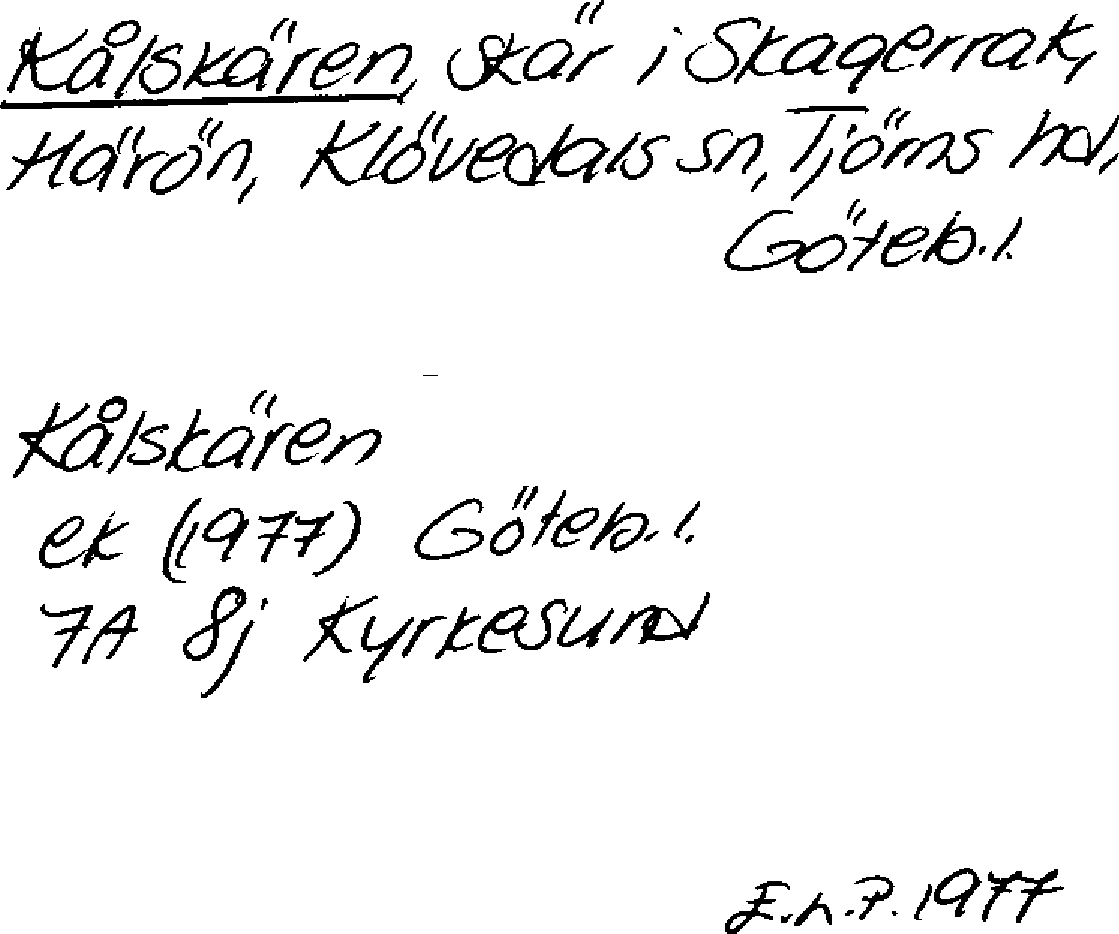 Kålskären, skär i Skagerrak,
Härön, Klövedals sn, Tjörns hd,
Göteb. l.
Kålskären
ek (1977) Göteb. l.
7A 8j Kyrkesund
E.h.P. 1977